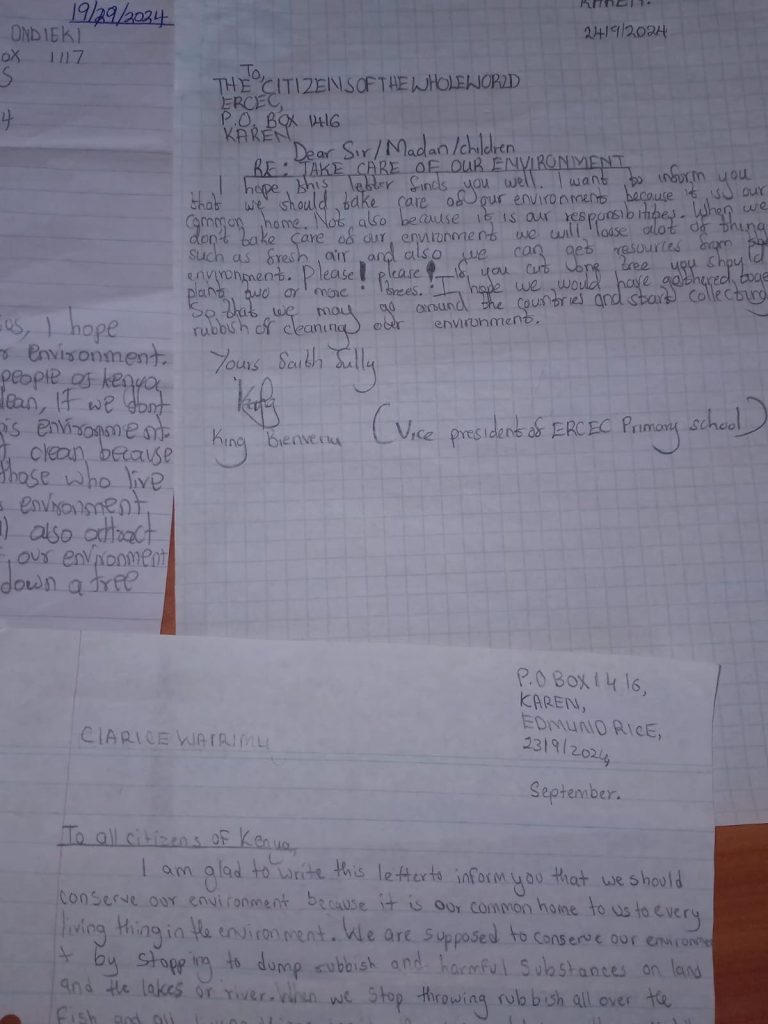 19/29/2024
ONDIEKI
OX 1117
S
4
I hope
environment.
people of kenya
lean, If we dont
is environment
clean because
those who live
environment,
also attract
our environment
down a tree
KAREN.
24/9/2024
To,
THE CITIZENS OF THE WHOLE WORLD
ERCEC,
P.O. BOX 1416
KAREN
Dear Sir/Madan/children
RE: TAKE CARE OF OUR ENVIRONMENT
I hope this letter finds you well. I want to inform you
that we should take care of our environment because it is our
common home. Not also because it is our responsibilities. When we
don't take care of our environment we will loose alot of thing
such as fresh air and also we can get resources
environment. Please! please! if you cut one tree you should
plant two or more trees. I hope we would have gathered toge
So that we may go around the countries and start collecting
rubbish or cleaning our environment.
Yours faith fully
King Bienvenu (Vice president of ERCEC Primary school)
P.O BOX 1416,
KAREN,
EDMUND RICE,
23/9/2024,
September.
CLARICE WAIRIMU
To all citizens of Kenya,
I am glad to write this letter to inform you that we should
conserve our environment because it is our common home to us to every
living thing in the environment. We are supposed to conserve our environme
t by stopping to dump rubbish and harmful substances on land
and the lakes or river. When we stop throwing rubbish all over the
fish and all